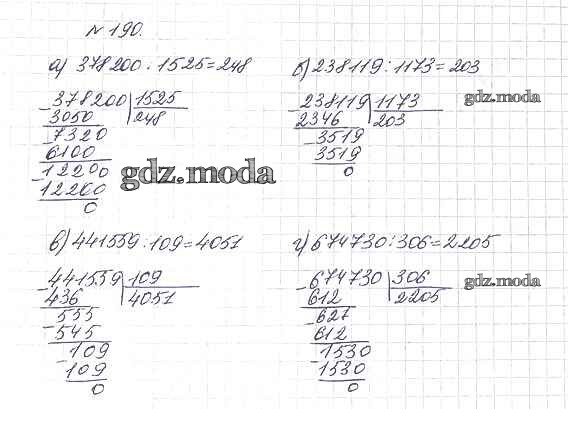 № 190.
а) 378200 : 1525 = 248
378200 1525
3050 248
7320
6100
12200
12200
0
б) 238119 : 1173 = 203
238119 1173
2346 203
3519
3519
0
gdz.moda
gdz.moda
в) 441559 : 109 = 4051
441559 109
436 4051
555
545
109
109
0
г) 674730 : 306 = 2205
674730 306
612 2205
627
612
1530
1530
0
gdz.moda